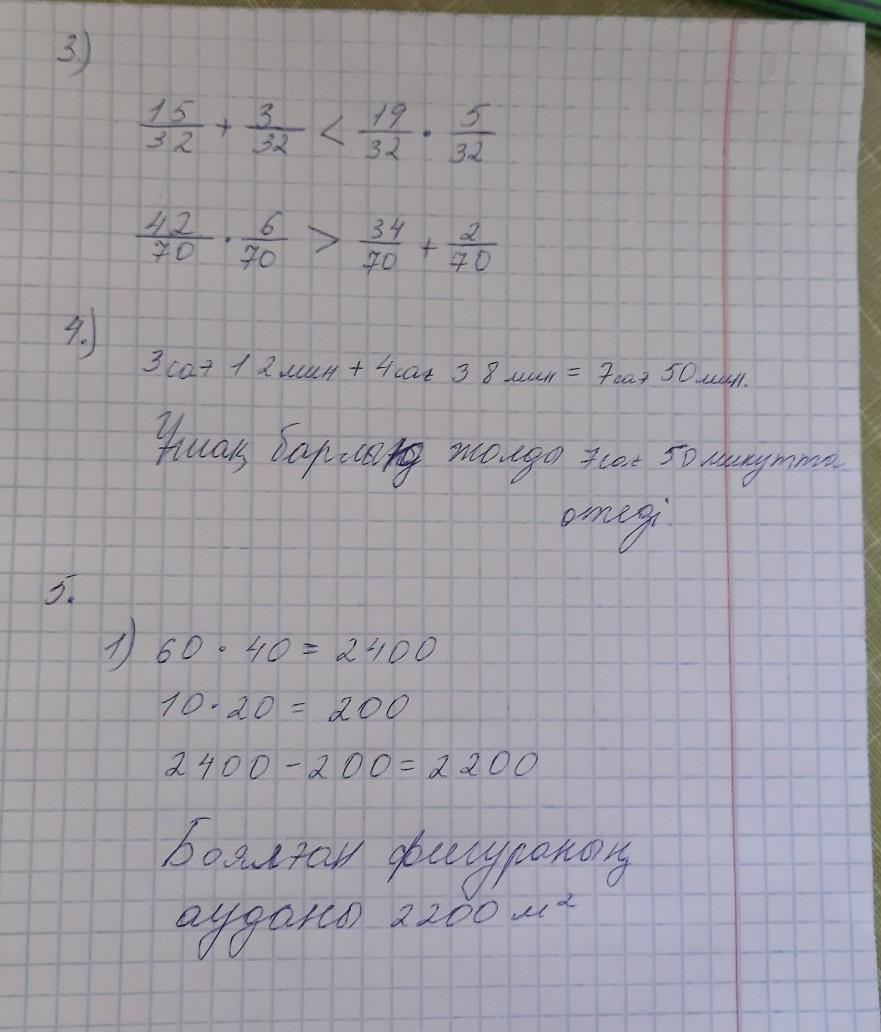 3.)
15/32 + 3/32 < 19/32 · 5/32
42/70 · 6/70 > 34/70 + 2/70
4.)
3сағ 12мин + 4сағ 38мин = 7сағ 50мин.
Ұшақ барлық жолды 7сағ 50минутта
өтеді.
5.
1) 60 · 40 = 2400
10 · 20 = 200
2400 - 200 = 2200
Боялған фигураның
ауданы 2200 м²